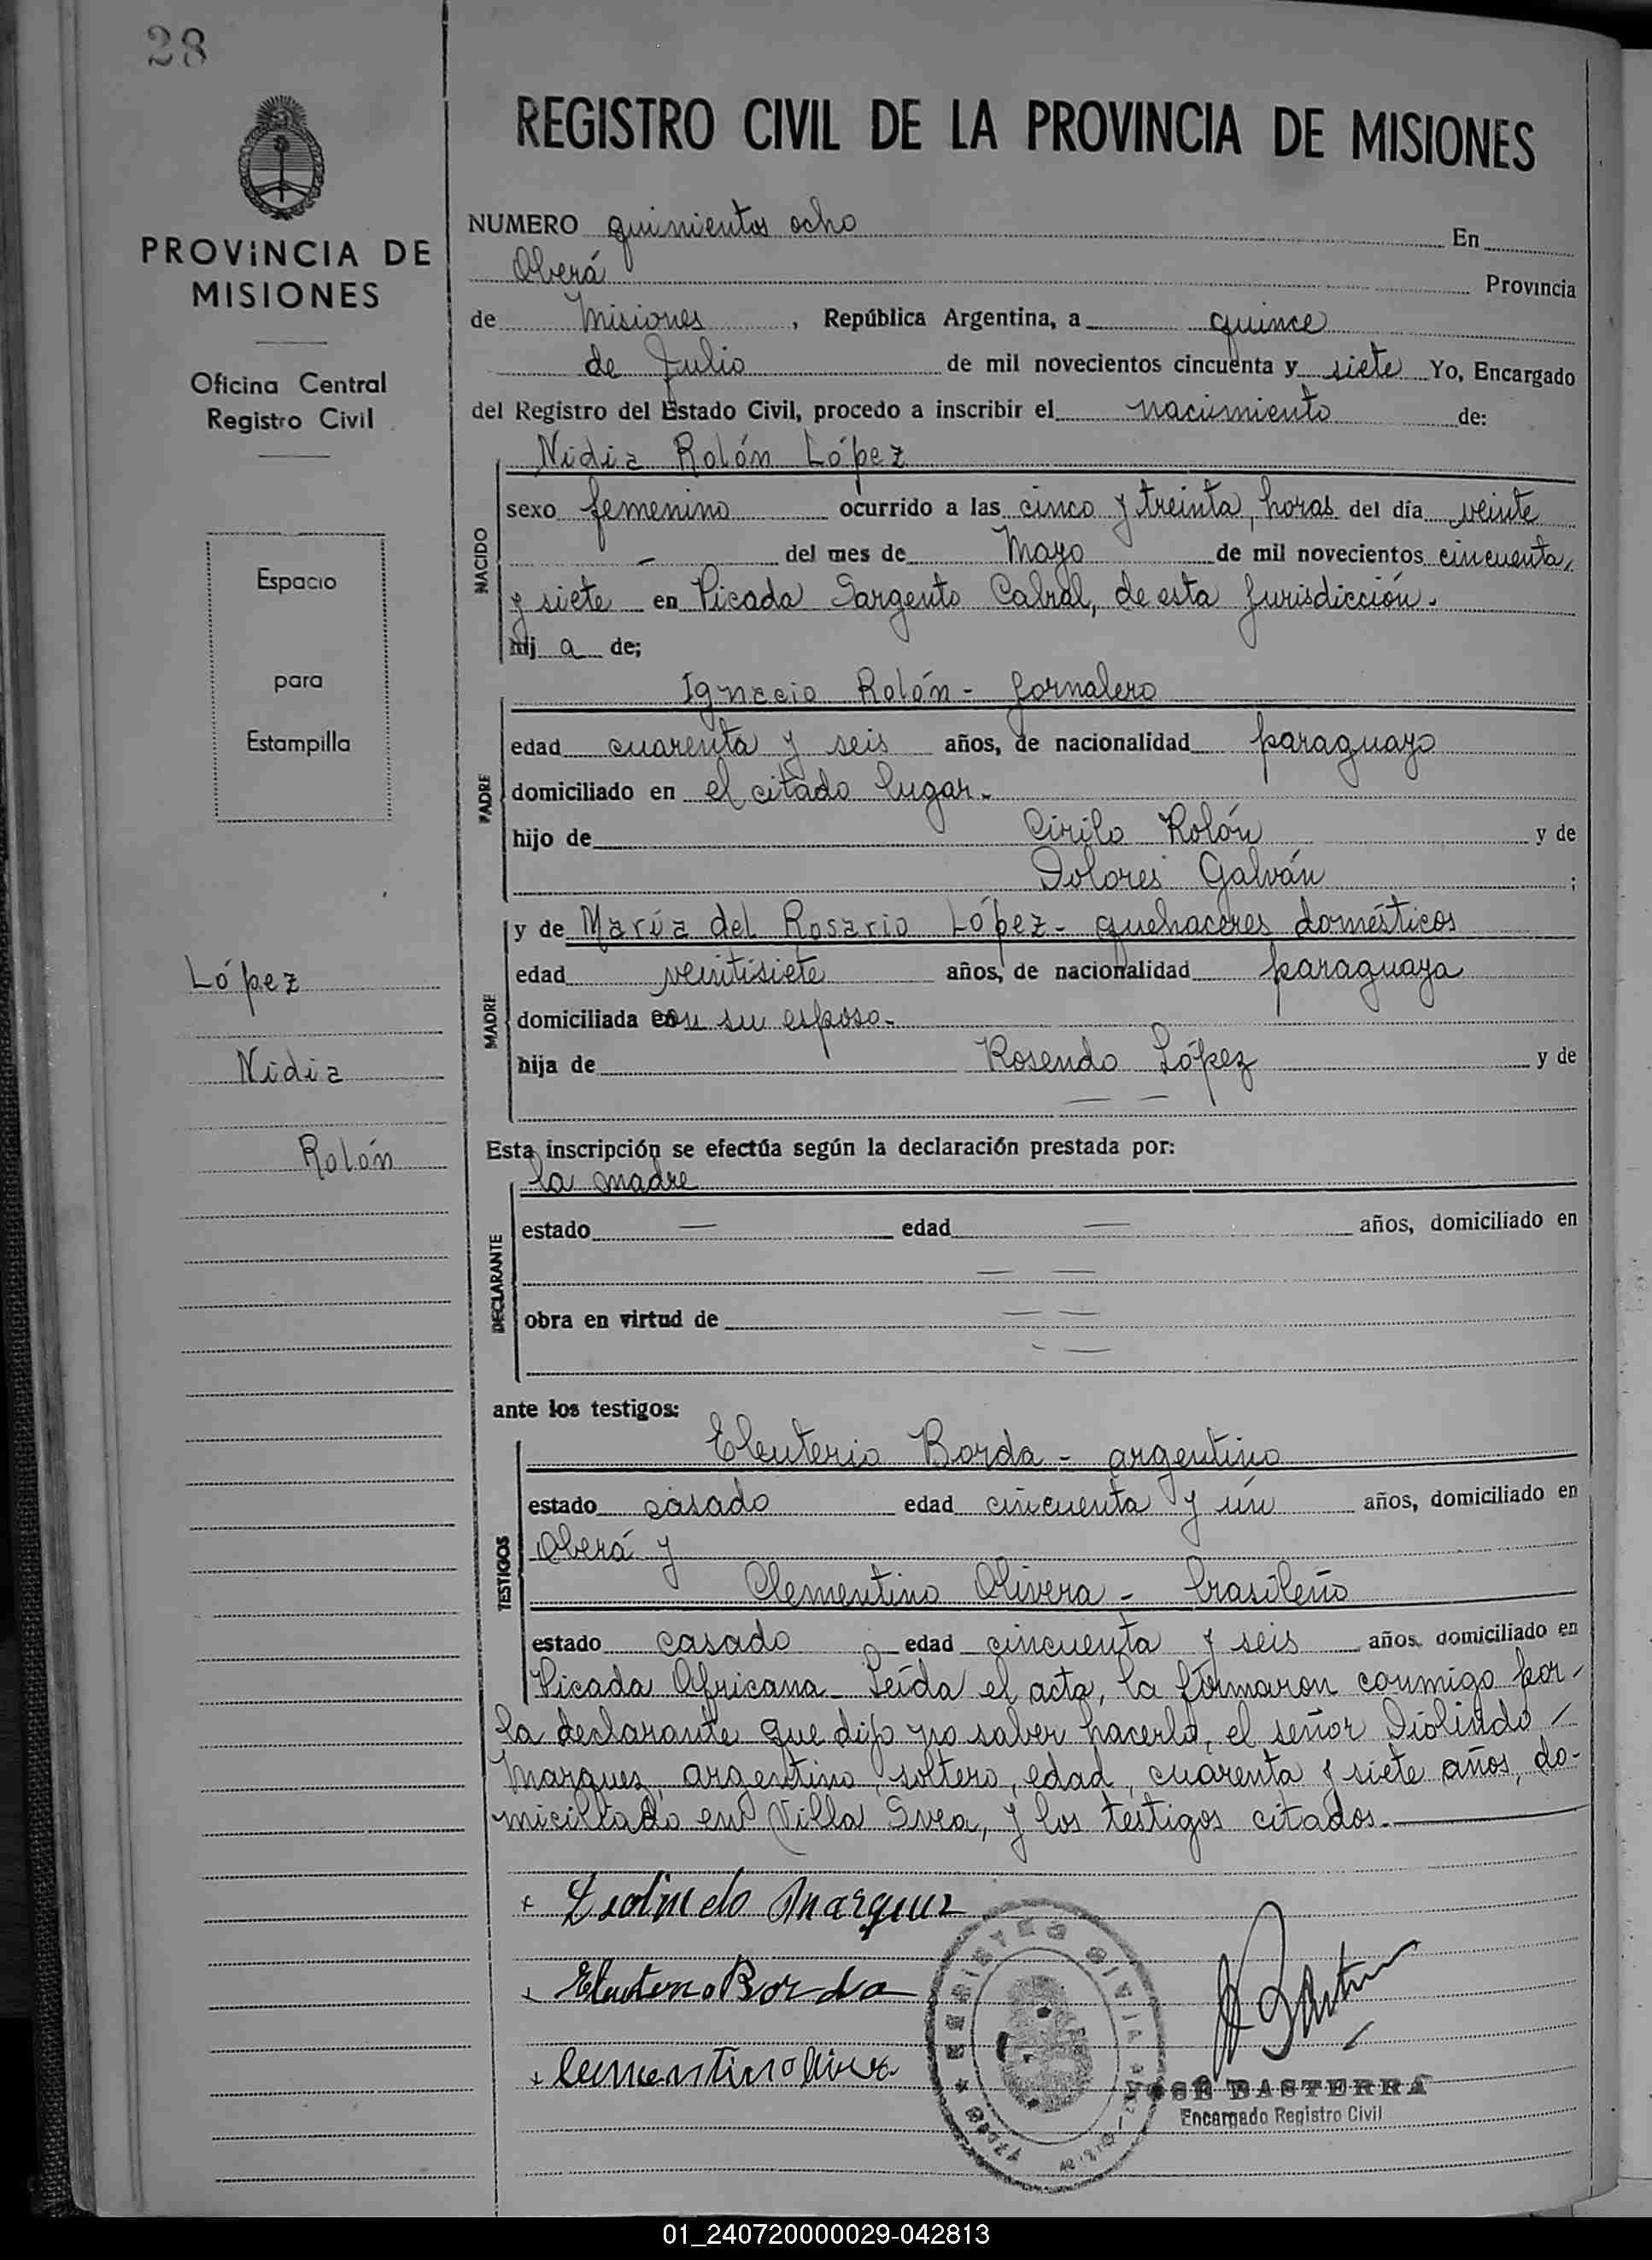 28
PROVINCIA DE
MISIONES
Oficina Central
Registro Civil
Espacio
para
Estampilla
López
Nidia
Rolón
REGISTRO CIVIL DE LA PROVINCIA DE MISIONES
NUMERO quinientos ocho En
Oberá Provincia
de Misiones, República Argentina, a quince
de Julio de mil novecientos cincuenta y siete Yo, Encargado
del Registro del Estado Civil, procedo a inscribir el nacimiento de:
Nidia Rolón López
NACIDO
sexo femenino ocurrido a las cinco y treinta, horas del día veinte
— del mes de Mayo de mil novecientos cincuenta,
y siete en Picada Sargento Cabral, de esta Jurisdicción.
hij a de;
Ignacio Rolón - Jornalero
PADRE
edad cuarenta y seis años, de nacionalidad paraguayo
domiciliado en el citado lugar.-
hijo de Cirilo Rolón y de
Dolores Galván ;
y de María del Rosario López - quehaceres domésticos
MADRE
edad veintisiete años, de nacionalidad paraguaya
domiciliada con su esposo.-
hija de Rosendo López y de
— —
Esta inscripción se efectúa según la declaración prestada por:
la madre
DECLARANTE
estado — edad — años, domiciliado en
— —
obra en virtud de — —
— —
ante los testigos:
Eleuterio Borda - argentino
TESTIGOS
estado casado edad cincuenta y un años, domiciliado en
Oberá y
Clementino Olivera - brasileño
estado casado edad cincuenta y seis años, domiciliado en
Picada Africana - Leída el acta, la firmaron conmigo por-
la declarante que dijo no saber hacerlo, el señor Diolindo -
Marquez, argentino, soltero, edad, cuarenta y siete años, do-
miciliado en Villa Svea, y los testigos citados.-
Diolindo Marquez
Eleuterio Borda
Clementino Olivera
REGISTRO CIVIL
OBERÁ
JOSÉ BASTERRA
Encargado Registro Civil
01_240720000029-042813